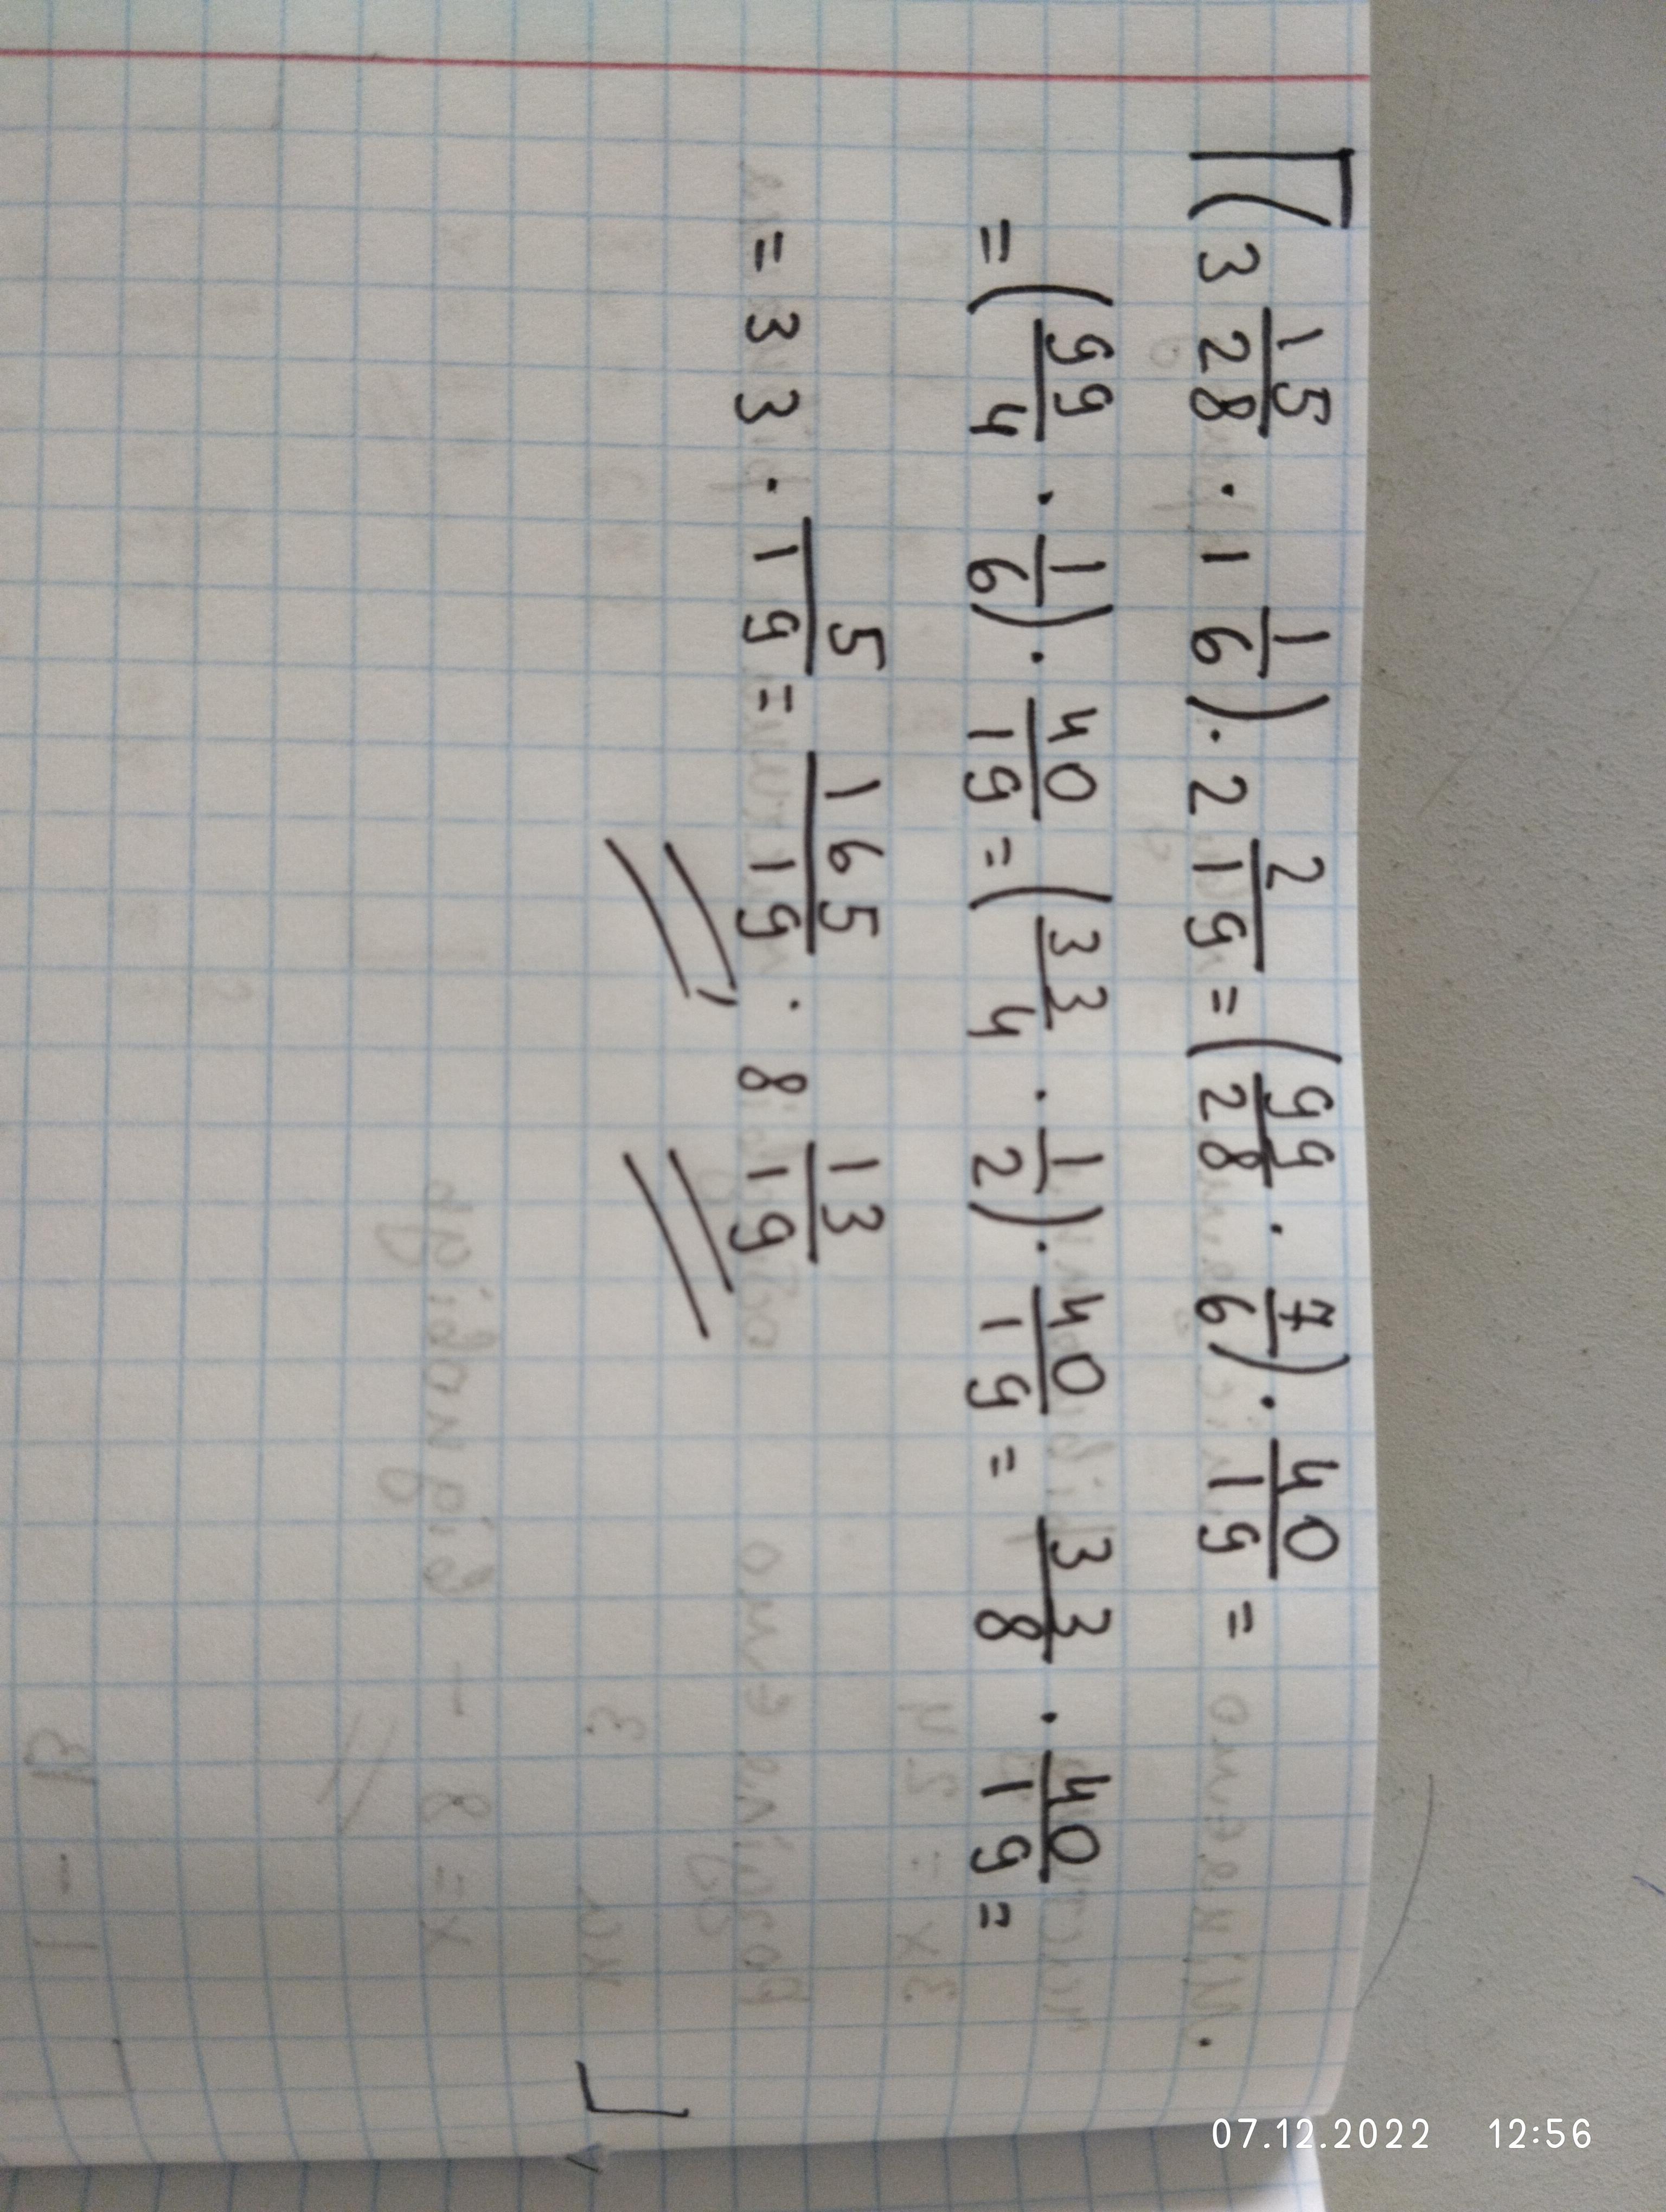 (3 15/28 · 1 1/6) · 2 2/19 = (99/28 · 7/6) · 40/19 =
= (99/4 · 1/6) · 40/19 = (33/4 · 1/2) · 40/19 = 33/8 · 40/19 =
= 33 · 5/19 = 165/19 ; 8 13/19
07.12.2022 12:56